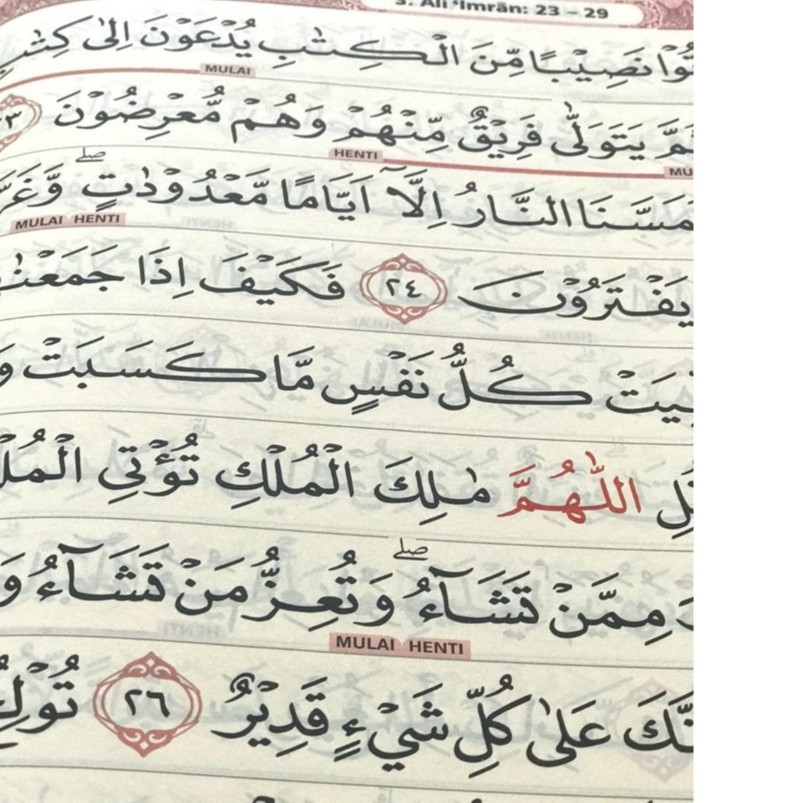 3. Āli 'Imrān: 23 – 29
تُوْا نَصِيْبًا مِّنَ الْكِتٰبِ يُدْعَوْنَ اِلٰى كِتٰبِ
MULAI
ثُمَّ يَتَوَلّٰى فَرِيْقٌ مِّنْهُمْ وَهُمْ مُّعْرِضُوْنَ ٢٣
HENTI
MU
تَمَسَّنَا النَّارُ اِلَّآ اَيَّامًا مَّعْدُوْدٰتٍ ۖ وَّغَرَّ
MULAI HENTI
يَفْتَرُوْنَ ٢٤ فَكَيْفَ اِذَا جَمَعْنٰهُ
فِّيَتْ كُلُّ نَفْسٍ مَّا كَسَبَتْ وَ
قُلِ اللّٰهُمَّ مٰلِكَ الْمُلْكِ تُؤْتِى الْمُلْ
مِمَّنْ تَشَاۤءُ ۖ وَتُعِزُّ مَنْ تَشَاۤءُ وَ
MULAI HENTI
نَّكَ عَلٰى كُلِّ شَيْءٍ قَدِيْرٌ ٢٦ تُوْلِ